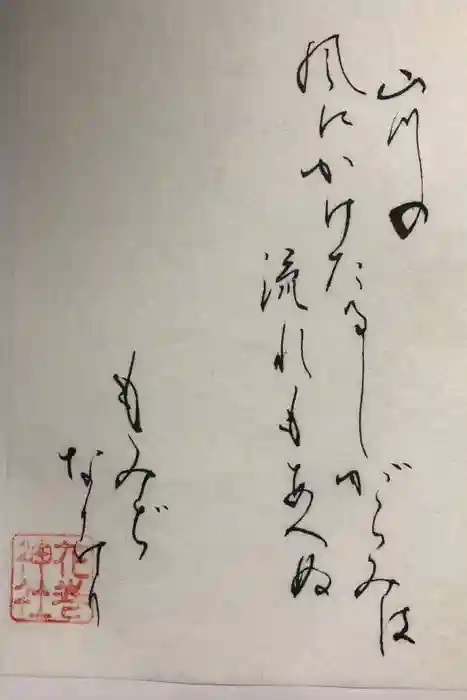 山川の
風にかけたるしがらみは
流れもあへぬ
もみぢ
なりけり